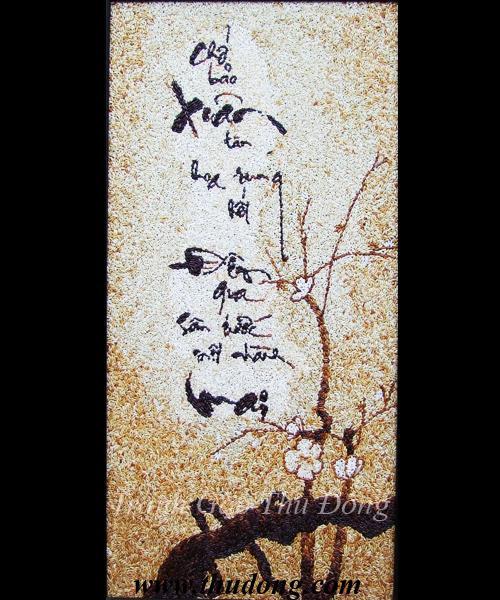 Chớ
bảo
Xuân
tàn
hoa rụng
hết
Đêm
qua
sân trước
một nhành
mai
Tranh Gạo Thu Dong
www.thudong.com